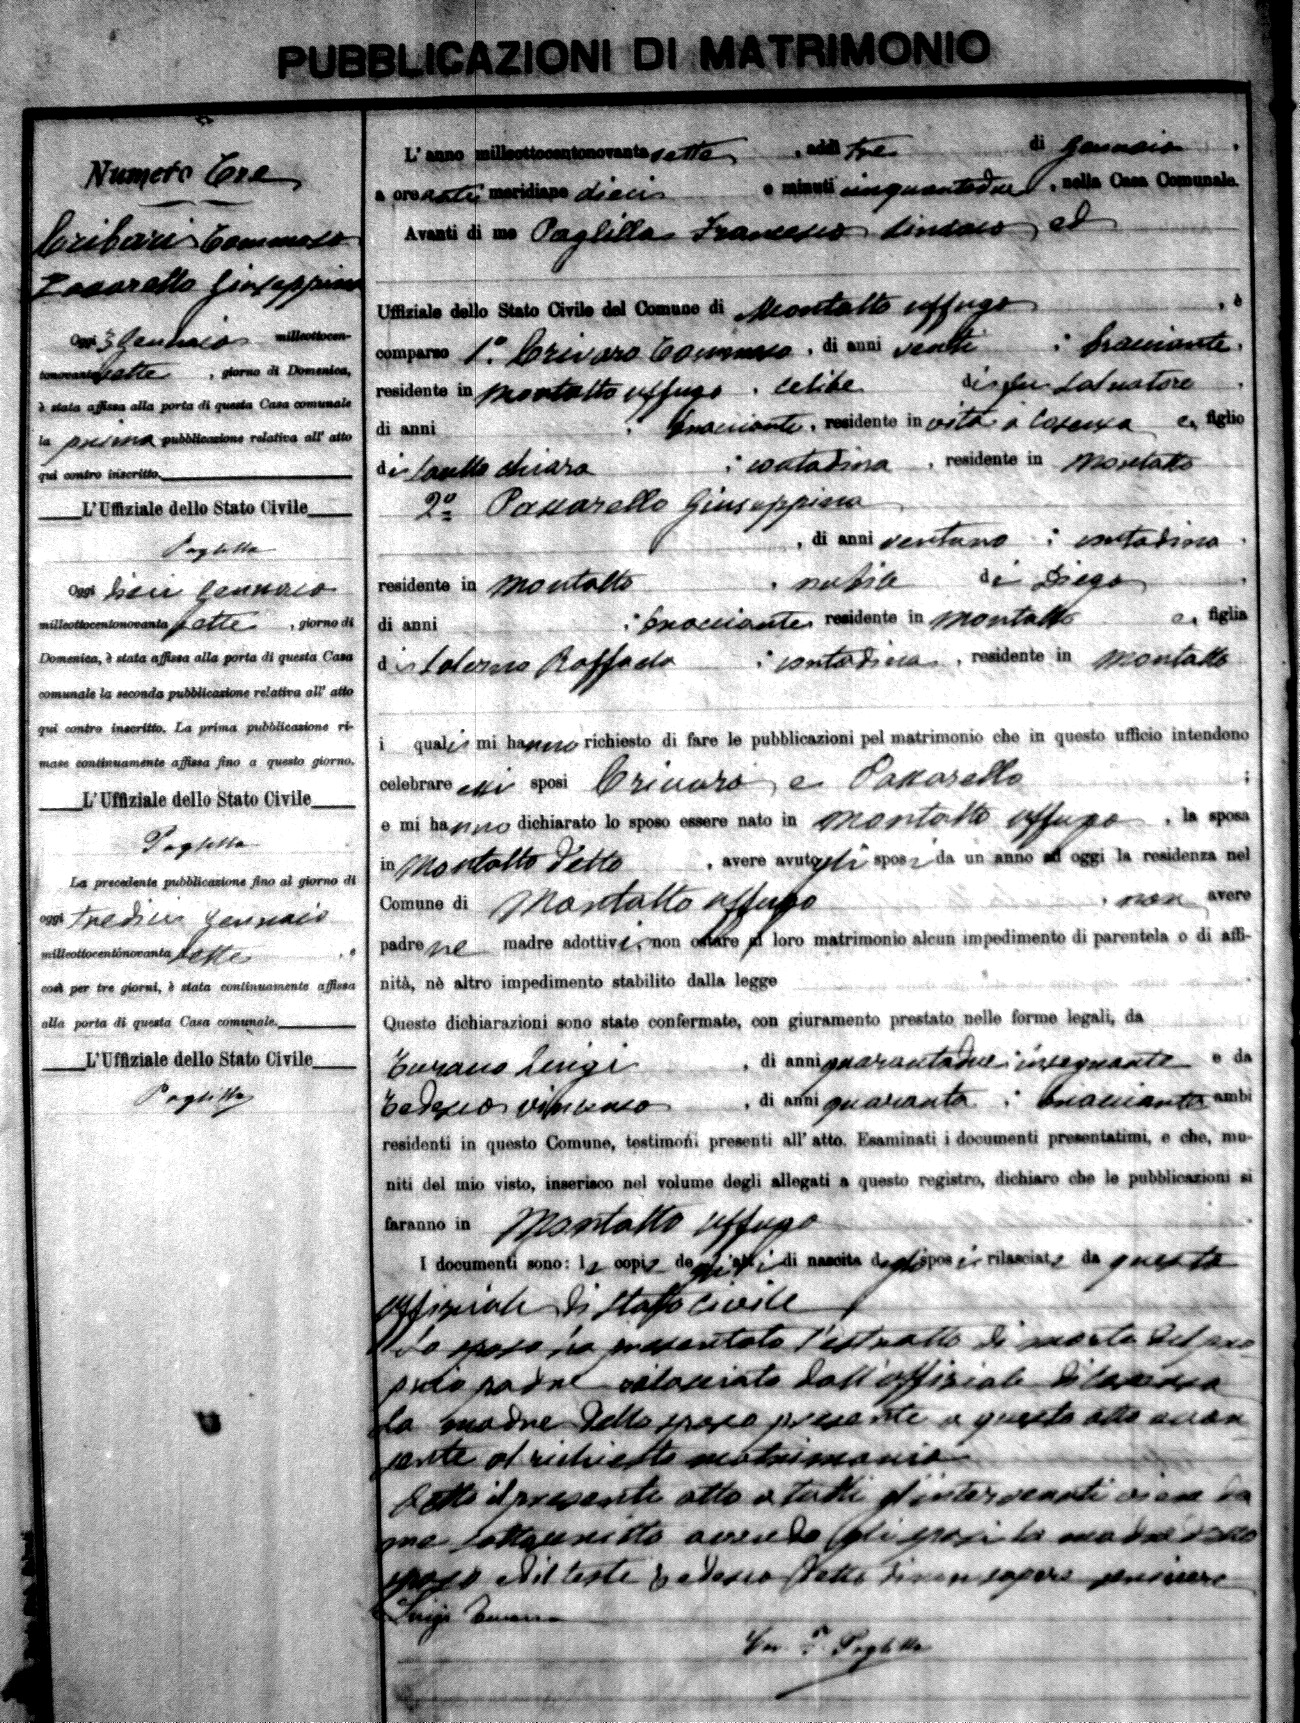 PUBBLICAZIONI DI MATRIMONIO
Numero Tre
Cribari Tommaso
Passarello Giuseppina
Oggi 3 Gennaio milleottocen-
tonovantasette, giorno di Domenica,
è stata affissa alla porta di questa Casa comunale
la prima pubblicazione relativa all' atto
qui contro inscritto.
L'Uffiziale dello Stato Civile
Paglilla
Oggi dieci Gennaio
milleottocentonovantasette, giorno di
Domenica, è stata affissa alla porta di questa Casa
comunale la seconda pubblicazione relativa all' atto
qui contro inscritto. La prima pubblicazione ri-
mase continuamente affissa fino a questo giorno.
L'Uffiziale dello Stato Civile
Paglilla
La precedente pubblicazione fino al giorno di
oggi tredici Gennaio
milleottocentonovantasette, e
così per tre giorni, è stata continuamente affissa
alla porta di questa Casa comunale.
L'Uffiziale dello Stato Civile
Paglilla
L'anno milleottocentonovantasette, addì tre di Gennaio,
a ore anti meridiane dieci e minuti cinquantadue, nella Casa Comunale.
Avanti di me Paglilla Francesco Sindaco ed
Uffiziale dello Stato Civile del Comune di Montalto Uffugo, è
comparso 1º. Crivaro Tommaso, di anni venti, bracciante,
residente in Montalto Uffugo, celibe di fu Salvatore,
di anni , bracciante, residente in vita a Cosenza e, figlio
di Chiara, contadina, residente in Montalto
2º Passarello Giuseppina
, di anni ventuno, contadina,
residente in Montalto, nubile di Diego,
di anni , bracciante, residente in Montalto e, figlia
di Salerno Raffaela, contadina, residente in Montalto
i quali mi hanno richiesto di fare le pubblicazioni pel matrimonio che in questo ufficio intendono
celebrare essi sposi Crivaro e Passarello ;
e mi hanno dichiarato lo sposo essere nato in Montalto Uffugo, la sposa
in Montalto detto, avere avuto gli sposi da un anno ad oggi la residenza nel
Comune di Montalto Uffugo, non avere
padre ne madre adottivi, non ostare al loro matrimonio alcun impedimento di parentela o di affi-
nità, nè altro impedimento stabilito dalla legge
Queste dichiarazioni sono state confermate, con giuramento prestato nelle forme legali, da
Turano Luigi, di anni quarantadue, insegnante e da
Tedesco Vincenzo, di anni quaranta, bracciante ambi
residenti in questo Comune, testimoni presenti all' atto. Esaminati i documenti presentatimi, e che, mu-
niti del mio visto, inserisco nel volume degli allegati a questo registro, dichiaro che le pubblicazioni si
faranno in Montalto Uffugo
I documenti sono: le copie degli atti di nascita degli sposi rilasciate da questo
Uffiziale di Stato Civile
Lo sposo ha presentato l'estratto di morte del pro
prio padre rilasciato dall'Uffiziale di Cosenza
La madre dello sposo presente a questo atto accon
sente al richiesto matrimonio
Letto il presente atto a tutti gl'intervenuti viene da
me sottoscritto avendo gli sposi la madre dello
sposo ed il teste Tedesco detto di non sapere scrivere
Luigi Turano
F. Paglilla